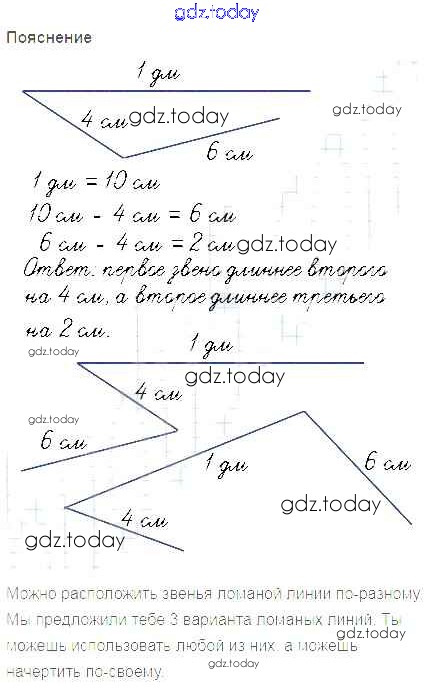 gdz.today
Пояснение
1 дм
gdz.today
4 см gdz.today
6 см
1 дм = 10 см
10 см - 4 см = 6 см
6 см - 4 см = 2 см gdz.today
Ответ: первое звено длиннее второго
на 4 см, а второе длиннее третьего
на 2 см.
1 дм
gdz.today
gdz.today
4 см
gdz.today
6 см
1 дм
6 см
gdz.today
4 см
gdz.today
Можно расположить звенья ломаной линии по-разному.
Мы предложили тебе 3 варианта ломаных линий. Ты
gdz.today
можешь использовать любой из них, а можешь
gdz.today
начертить по-своему.